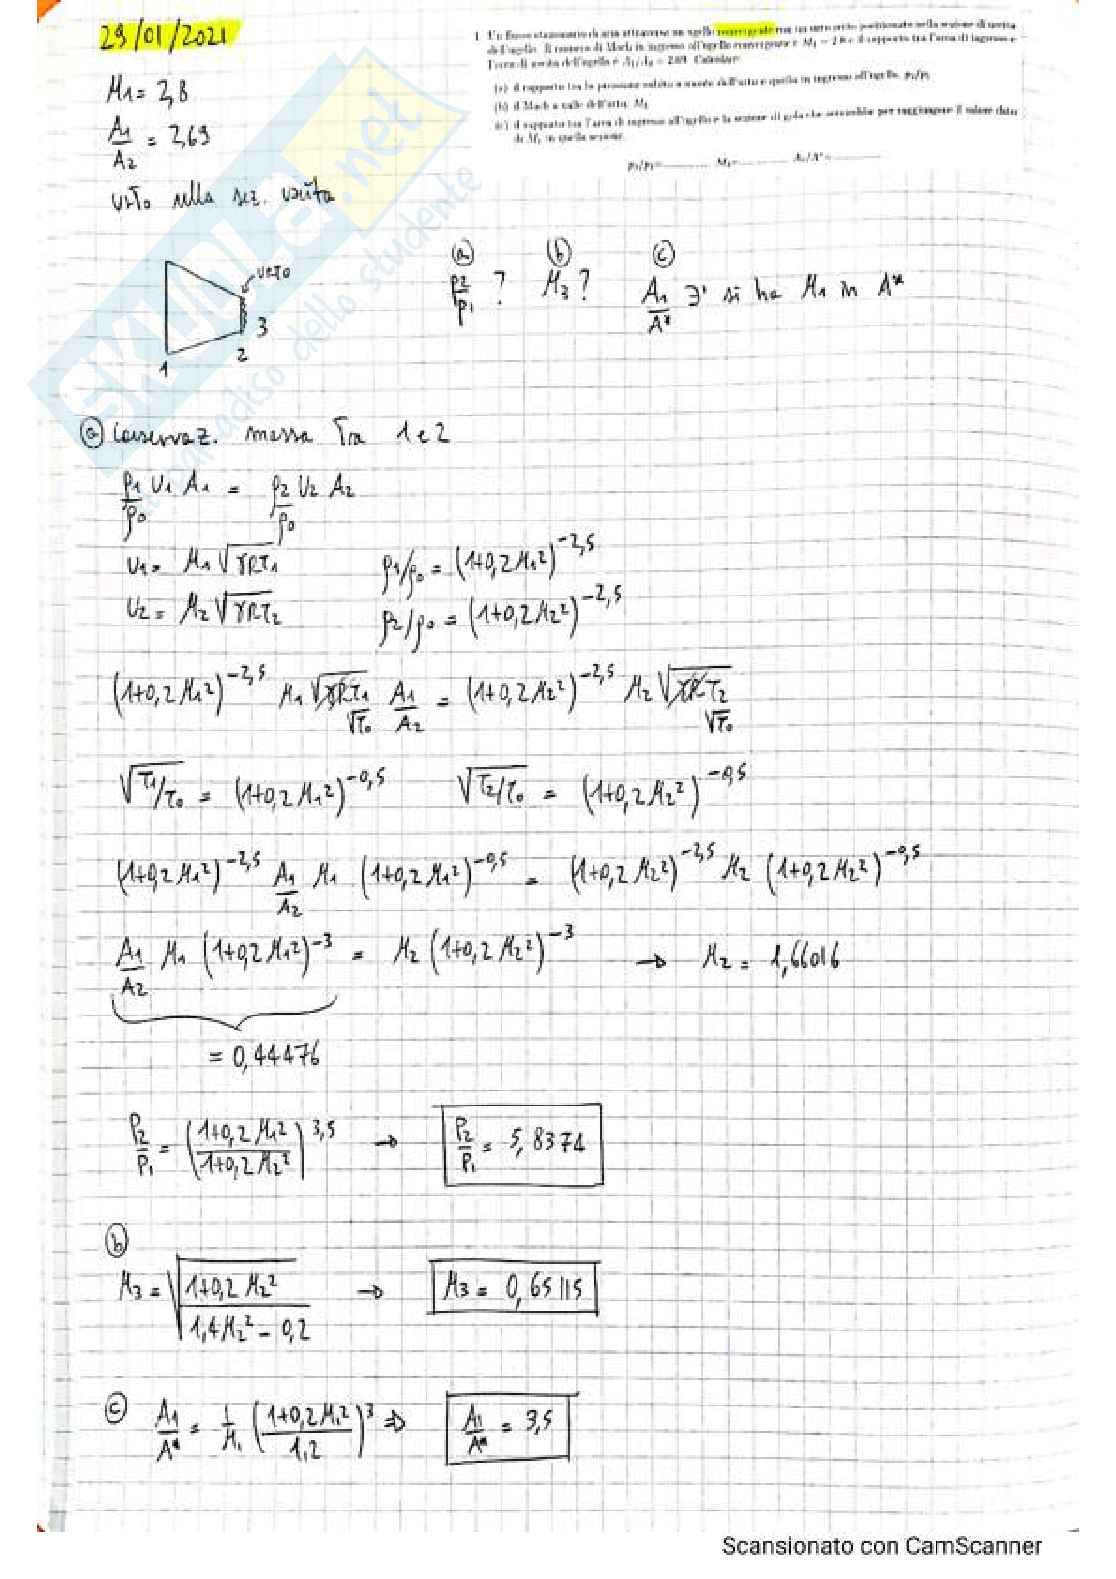 29/01/2021
1 Un flusso stazionario di aria attraversa un ugello convergente con un urto retto posizionato nella sezione di uscita
dell'ugello. Il numero di Mach in ingresso all'ugello convergente è M₁ = 2.8 e il rapporto tra l'area di ingresso e
l'area di uscita dell'ugello è A₁/A₂ = 2.69. Calcolare:
(a) il rapporto tra la pressione subito a monte dell'urto e quella in ingresso all'ugello, p₂/p₁
(b) il Mach a valle dell'urto, M₃
(c) il rapporto tra l'area di ingresso all'ugello e la sezione di gola che servirebbe per raggiungere il valore dato
di M₁ in quella sezione.
p₂/p₁= M₃= A₁/A*=
M₁ = 2,8
A₁/A₂ = 2,69
urto nella sez. uscita
URTO
1 2 3
ⓐ ⓑ ⓒ
p₂/p₁ ? M₃ ? A₁/A* ∃' si ha M₁ in A*
ⓐ Conservaz. massa tra 1 e 2
ρ₁/ρ₀ U₁ A₁ = ρ₂/ρ₀ U₂ A₂
U₁ = M₁ √γRT₁ ρ₁/ρ₀ = (1+0,2M₁²)^-2,5
U₂ = M₂ √γRT₂ ρ₂/ρ₀ = (1+0,2M₂²)^-2,5
(1+0,2M₁²)^-2,5 M₁ √γRT₁/√T₀ A₁/A₂ = (1+0,2M₂²)^-2,5 M₂ √γRT₂/√T₀
√T₁/T₀ = (1+0,2M₁²)^-0,5 √T₂/T₀ = (1+0,2M₂²)^-0,5
(1+0,2M₁²)^-2,5 A₁/A₂ M₁ (1+0,2M₁²)^-0,5 = (1+0,2M₂²)^-2,5 M₂ (1+0,2M₂²)^-0,5
A₁/A₂ M₁ (1+0,2M₁²)^-3 = M₂ (1+0,2M₂²)^-3 → M₂ = 1,66016
= 0,44476
P₂/P₁ = ((1+0,2M₁²)/(1+0,2M₂²))^3,5 → P₂/P₁ = 5,8374
ⓑ
M₃ = √(1+0,2M₂²)/(1,4M₂² - 0,2) → M₃ = 0,65115
ⓒ A₁/A* = 1/M₁ ((1+0,2M₁²)/1,2)^3 ⇒ A₁/A* = 3,5
SKUOLA.net
il paradiso dello studente
Scansionato con CamScanner